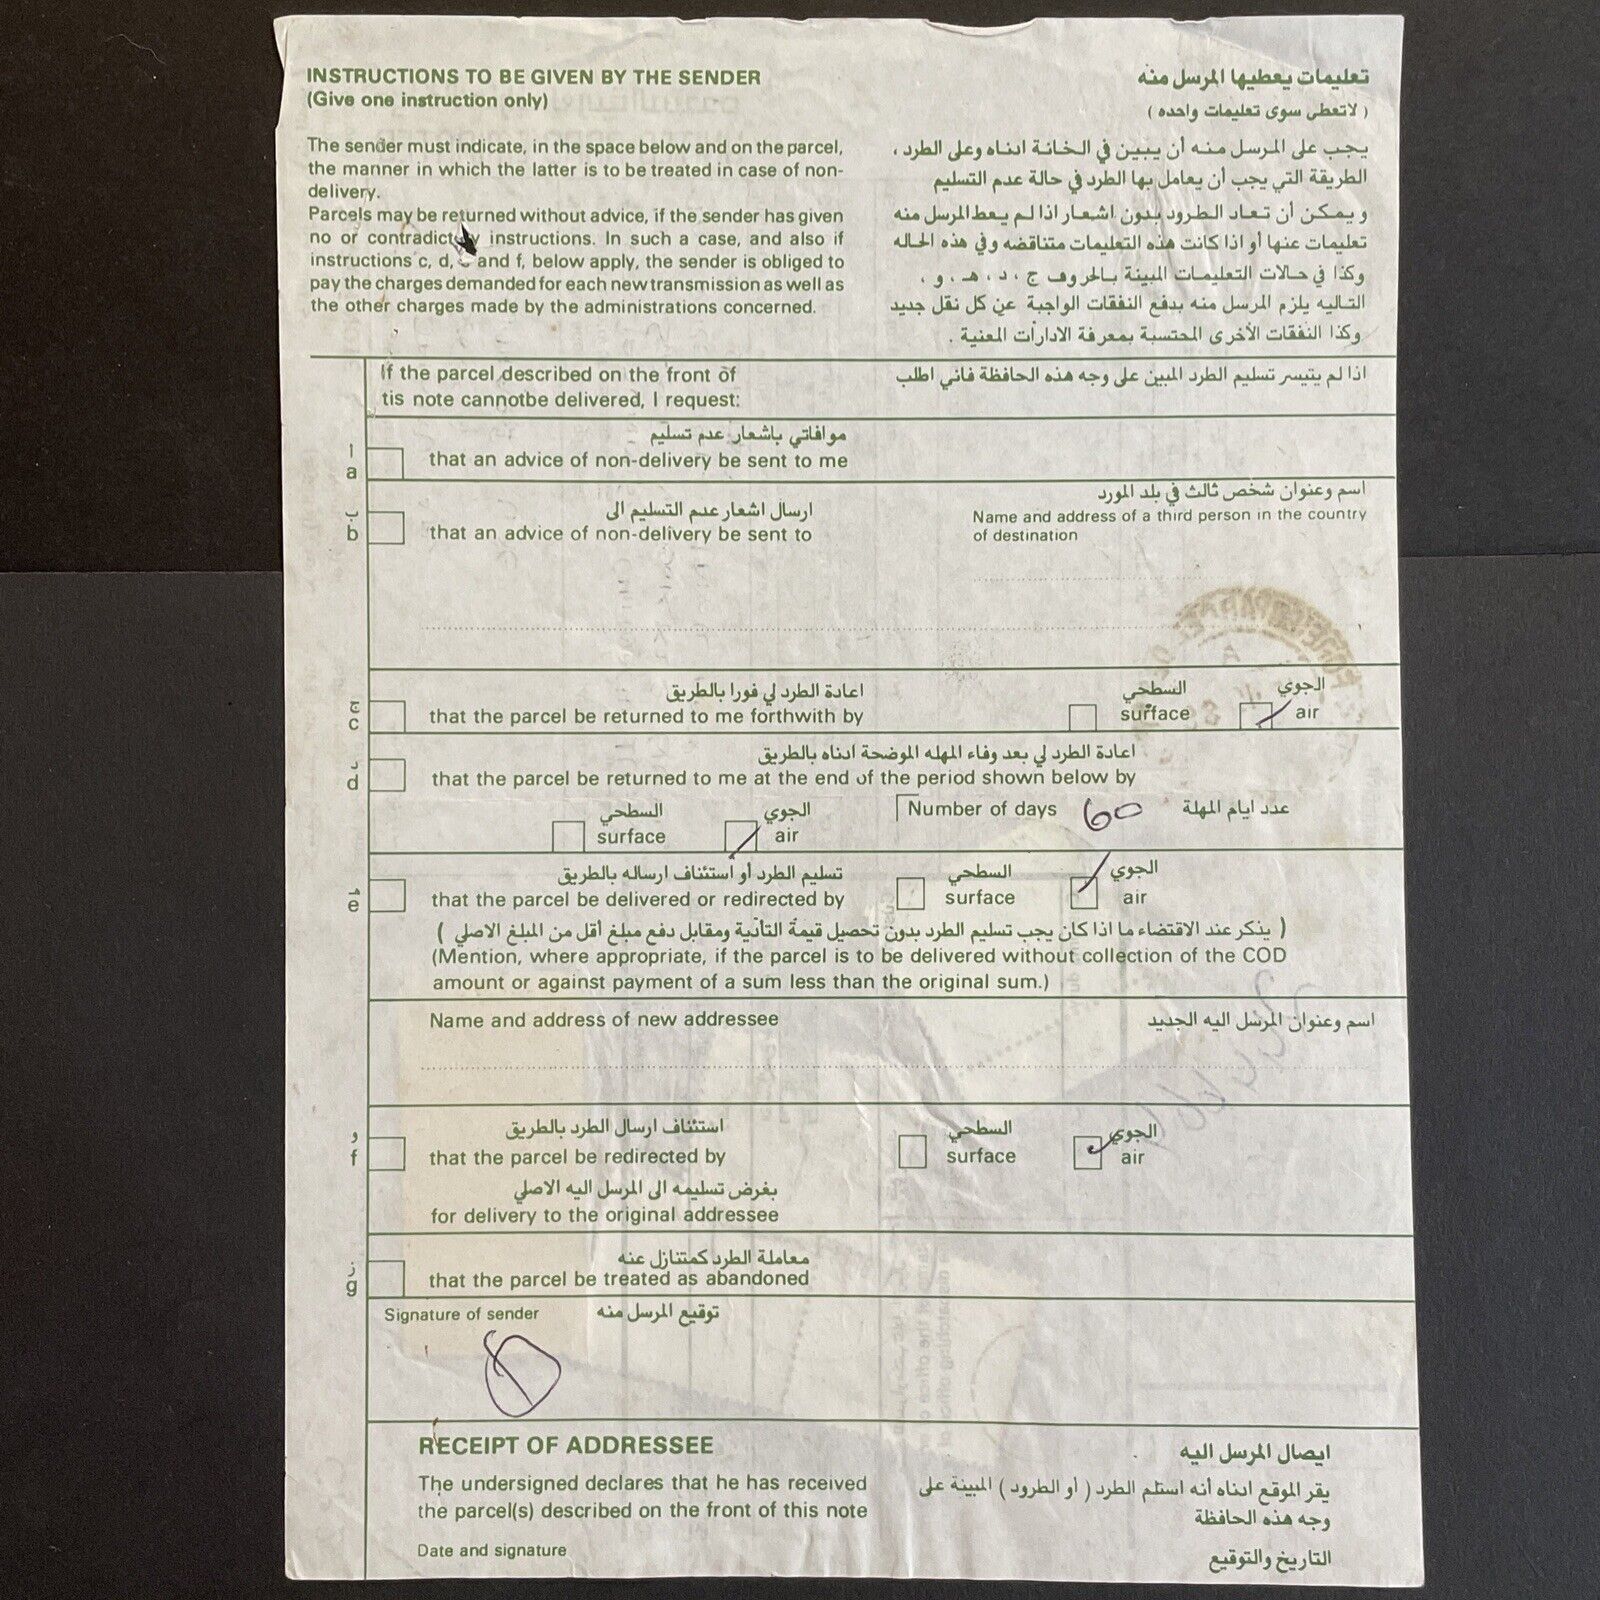 INSTRUCTIONS TO BE GIVEN BY THE SENDER
(Give one instruction only)
تعليمات يعطيها المرسل منه
( لاتعطى سوى تعليمات واحده )
The sender must indicate, in the space below and on the parcel,
the manner in which the latter is to be treated in case of non-
delivery.
Parcels may be returned without advice, if the sender has given
no or contradictory instructions. In such a case, and also if
instructions c, d, e and f, below apply, the sender is obliged to
pay the charges demanded for each new transmission as well as
the other charges made by the administrations concerned.
يجب على المرسل منه أن يبين في الخانة ادناه وعلى الطرد ،
الطريقة التي يجب أن يعامل بها الطرد في حالة عدم التسليم
و يمكن أن تعاد الطرود بدون اشعار اذا لم يعط المرسل منه
تعليمات عنها أو اذا كانت هذه التعليمات متناقضه وفي هذه الحاله
وكذا في حالات التعليمات المبينة بالحروف ج ، د ، هـ ، و ،
التاليه يلزم المرسل منه بدفع النفقات الواجبة عن كل نقل جديد
وكذا النفقات الأخرى المحتسبة بمعرفة الادارات المعنية .
If the parcel described on the front of
tis note cannotbe delivered, I request:
اذا لم يتيسر تسليم الطرد المبين على وجه هذه الحافظة فاني اطلب
ا
a
موافاتي باشعار عدم تسليم
that an advice of non-delivery be sent to me
ب
b
ارسال اشعار عدم التسليم الى
that an advice of non-delivery be sent to
اسم وعنوان شخص ثالث في بلد المورد
Name and address of a third person in the country
of destination
ج
c
اعادة الطرد لي فورا بالطريق
that the parcel be returned to me forthwith by
السطحي
surface
الجوي
air
د
d
اعادة الطرد لي بعد وفاء المهله الموضحة ادناه بالطريق
that the parcel be returned to me at the end of the period shown below by
السطحي
surface
الجوي
air
Number of days 60 عدد ايام المهلة
هـ
e
تسليم الطرد أو استئناف ارساله بالطريق
that the parcel be delivered or redirected by
السطحي
surface
الجوي
air
( يذكر عند الاقتضاء ما اذا كان يجب تسليم الطرد بدون تحصيل قيمة التأدية ومقابل دفع مبلغ أقل من المبلغ الاصلي )
(Mention, where appropriate, if the parcel is to be delivered without collection of the COD
amount or against payment of a sum less than the original sum.)
Name and address of new addressee
اسم وعنوان المرسل اليه الجديد
و
f
استئناف ارسال الطرد بالطريق
that the parcel be redirected by
السطحي
surface
الجوي
air
بغرض تسليمه الى المرسل اليه الاصلي
for delivery to the original addressee
ز
g
معاملة الطرد كمتنازل عنه
that the parcel be treated as abandoned
Signature of sender توقيع المرسل منه
RECEIPT OF ADDRESSEE
ايصال المرسل اليه
The undersigned declares that he has received
the parcel(s) described on the front of this note
يقر الموقع ادناه أنه استلم الطرد ( أو الطرود ) المبينة على
وجه هذه الحافظة
Date and signature
التاريخ والتوقيع